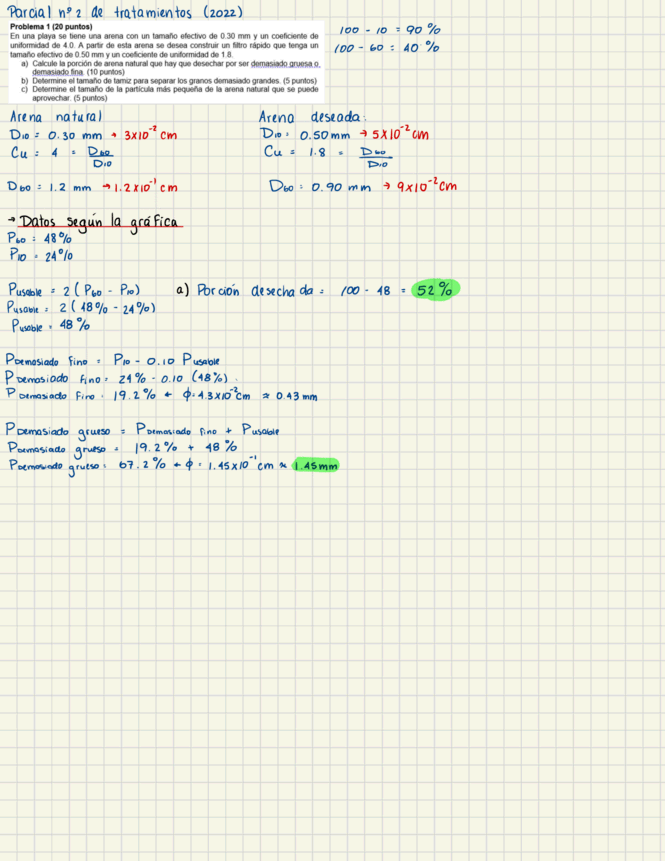 Parcial nº 2 de tratamientos (2022)
Problema 1 (20 puntos)
En una playa se tiene una arena con un tamaño efectivo de 0.30 mm y un coeficiente de
uniformidad de 4.0. A partir de esta arena se desea construir un filtro rápido que tenga un
tamaño efectivo de 0.50 mm y un coeficiente de uniformidad de 1.8.
a) Calcule la porción de arena natural que hay que desechar por ser demasiado gruesa o
demasiado fina. (10 puntos)
b) Determine el tamaño de tamiz para separar los granos demasiado grandes. (5 puntos)
c) Determine el tamaño de la partícula más pequeña de la arena natural que se puede
aprovechar. (5 puntos)
100 - 10 = 90 %
100 - 60 = 40 %
Arena natural
D10 = 0.30 mm → 3x10⁻² cm
Cu = 4 = D60/D10
D60 = 1.2 mm → 1.2x10⁻¹ cm
Arena deseada:
D10 = 0.50 mm → 5x10⁻² cm
Cu = 1.8 = D60/D10
D60 = 0.90 mm → 9x10⁻² cm
→ Datos según la gráfica
P60 = 48%
P10 = 24%
Pusable = 2 (P60 - P10)
Pusable = 2 (48% - 24%)
Pusable = 48 %
a) Porción desechada = 100 - 48 = 52%
PDemasiado fino = P10 - 0.10 Pusable
PDemasiado fino = 24% - 0.10 (48%)
PDemasiado fino = 19.2% ← ϕ = 4.3x10⁻² cm ≈ 0.43 mm
PDemasiado grueso = PDemasiado fino + Pusable
PDemasiado grueso = 19.2% + 48 %
PDemasiado grueso = 67.2 % ← ϕ = 1.45x10⁻¹ cm ≈ 1.45mm